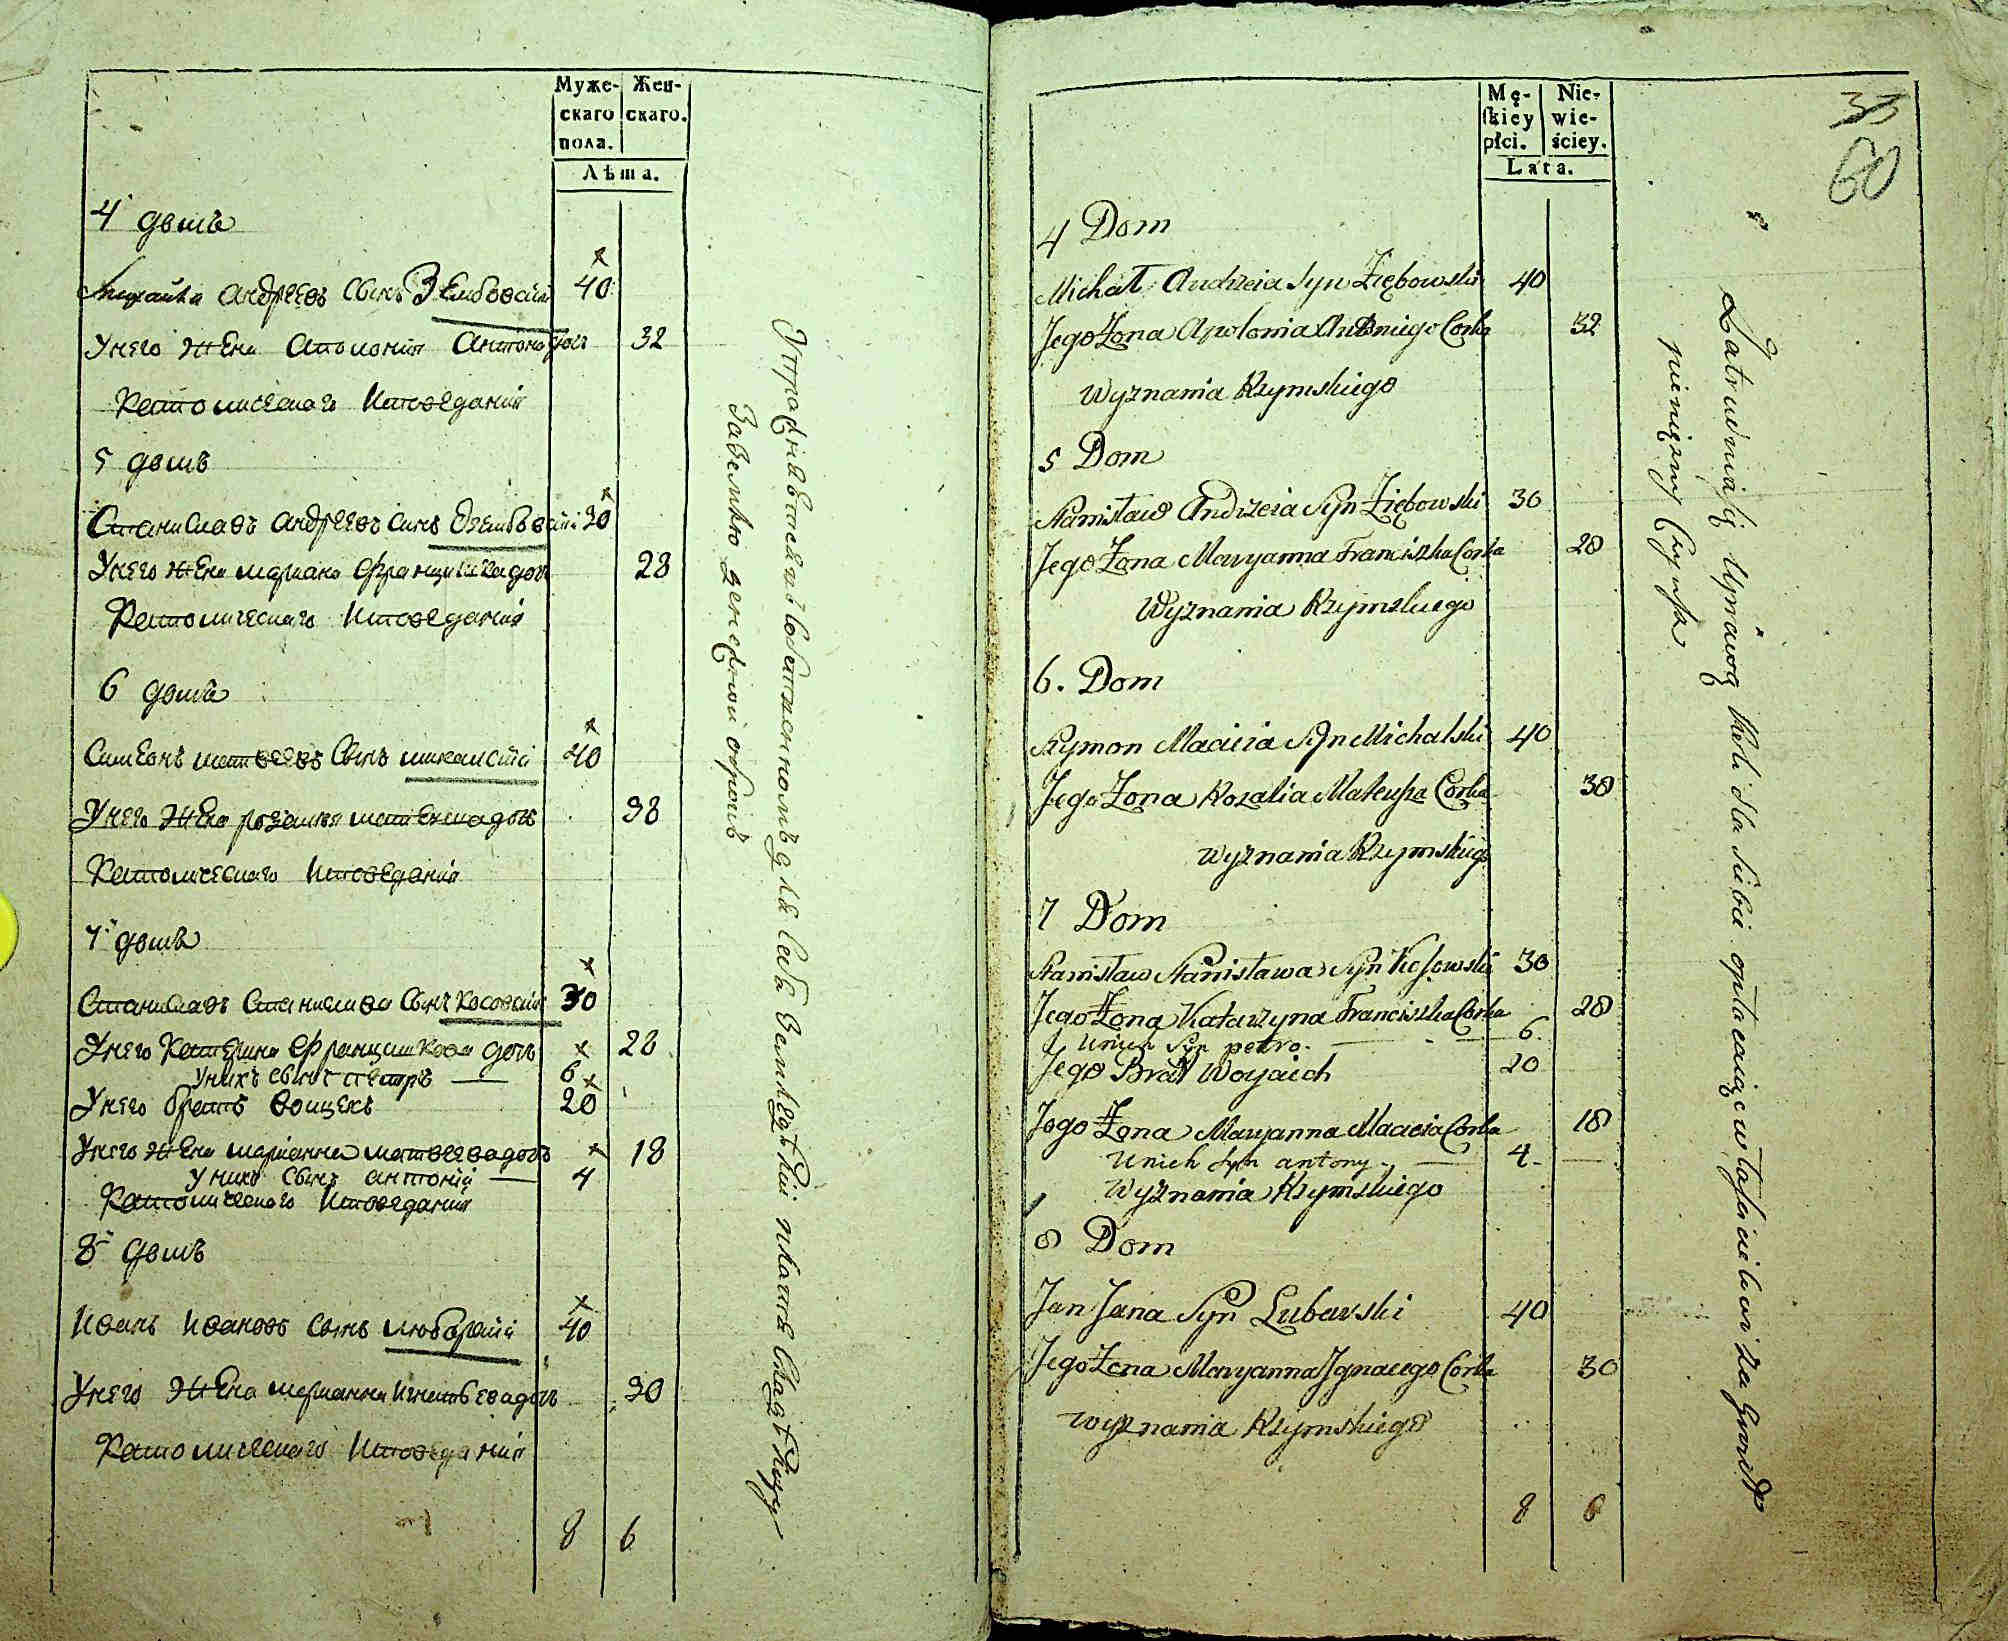 Муже-
скаго
пола.
Жен-
скаго.
Лѣта.
4 домъ
Михайла Андреевъ сынъ Зембовскій 40
У него жена Аполонія Антонова дочь 32
Католическаго исповеданія
5 домъ
Станиславъ Андреевъ сынъ Зембовскій 30
У него жена Маріана Францишкова дочь 28
Католическаго исповеданія
6 домъ
Симеонъ Матвеевъ сынъ Михальскій 40
У него жена Розалія дочь 38
Католическаго исповеданія
7 домъ
Станиславъ Станислава сынъ Косовскій 30
У него Катерина Францишкова дочь 28
У нихъ сынъ Петръ 6
У него братъ Войцехъ 20
У него жена Маріанна Матвеева дочь 18
У нихъ сынъ Антоній 4
Католическаго исповеданія
8 домъ
Иванъ Ивановъ сынъ Любарскій 40
У него жена Маріанна Игнатьева дочь 30
Католическаго исповеданія
8 6
для себя платятъ
За землю денежной оброкъ
Mę-
skiey
płci.
Nie-
wie-
ściey.
Lata.
33
60
4 Dom
Michał Andrzeia Syn Ziębowski 40
Jego Żona Apolonia Antoniego Corka 32
Wyznania Rzymskiego
5 Dom
Stanisław Andrzeia Syn Ziębowski 30
Jego Żona Maryanna Franciszka Corka 28
Wyznania Rzymskiego
6. Dom
Szymon Macieia Syn Michalski 40
Jego Żona Rozalia Mateusza Corka 38
Wyznania Rzymskiego
7 Dom
Stanisław Stanisława Syn Kosowski 30
Jego Żona Katarzyna Franciszka Corka 28
Unich Syn petro. 6
Jego Brat Woyciech 20
Jego Żona Maryanna Macieia Corka 18
Unich Syn antony 4
Wyznania Rzymskiego
8 Dom
Jan Jana Syn Lubarski 40
Jego Żona Maryanna Ignacego Corka 30
Wyznania Rzymskiego
8 6
Zatrudniaią się Uprawą Roli dla siebie opłacaiąc właścicielowi za Grunt
pieniężny Czynsz